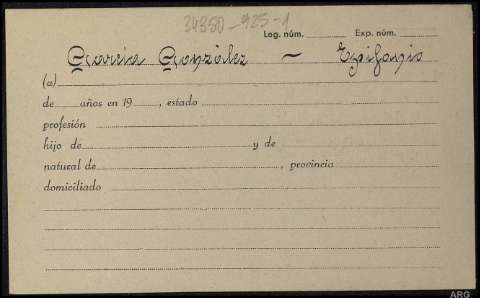 34380-925-1
Leg. núm. Exp. núm.
García González ~ Epifanio
(a)
de años en 19 , estado
profesión
hijo de y de
natural de , provincia
domiciliado
ARG